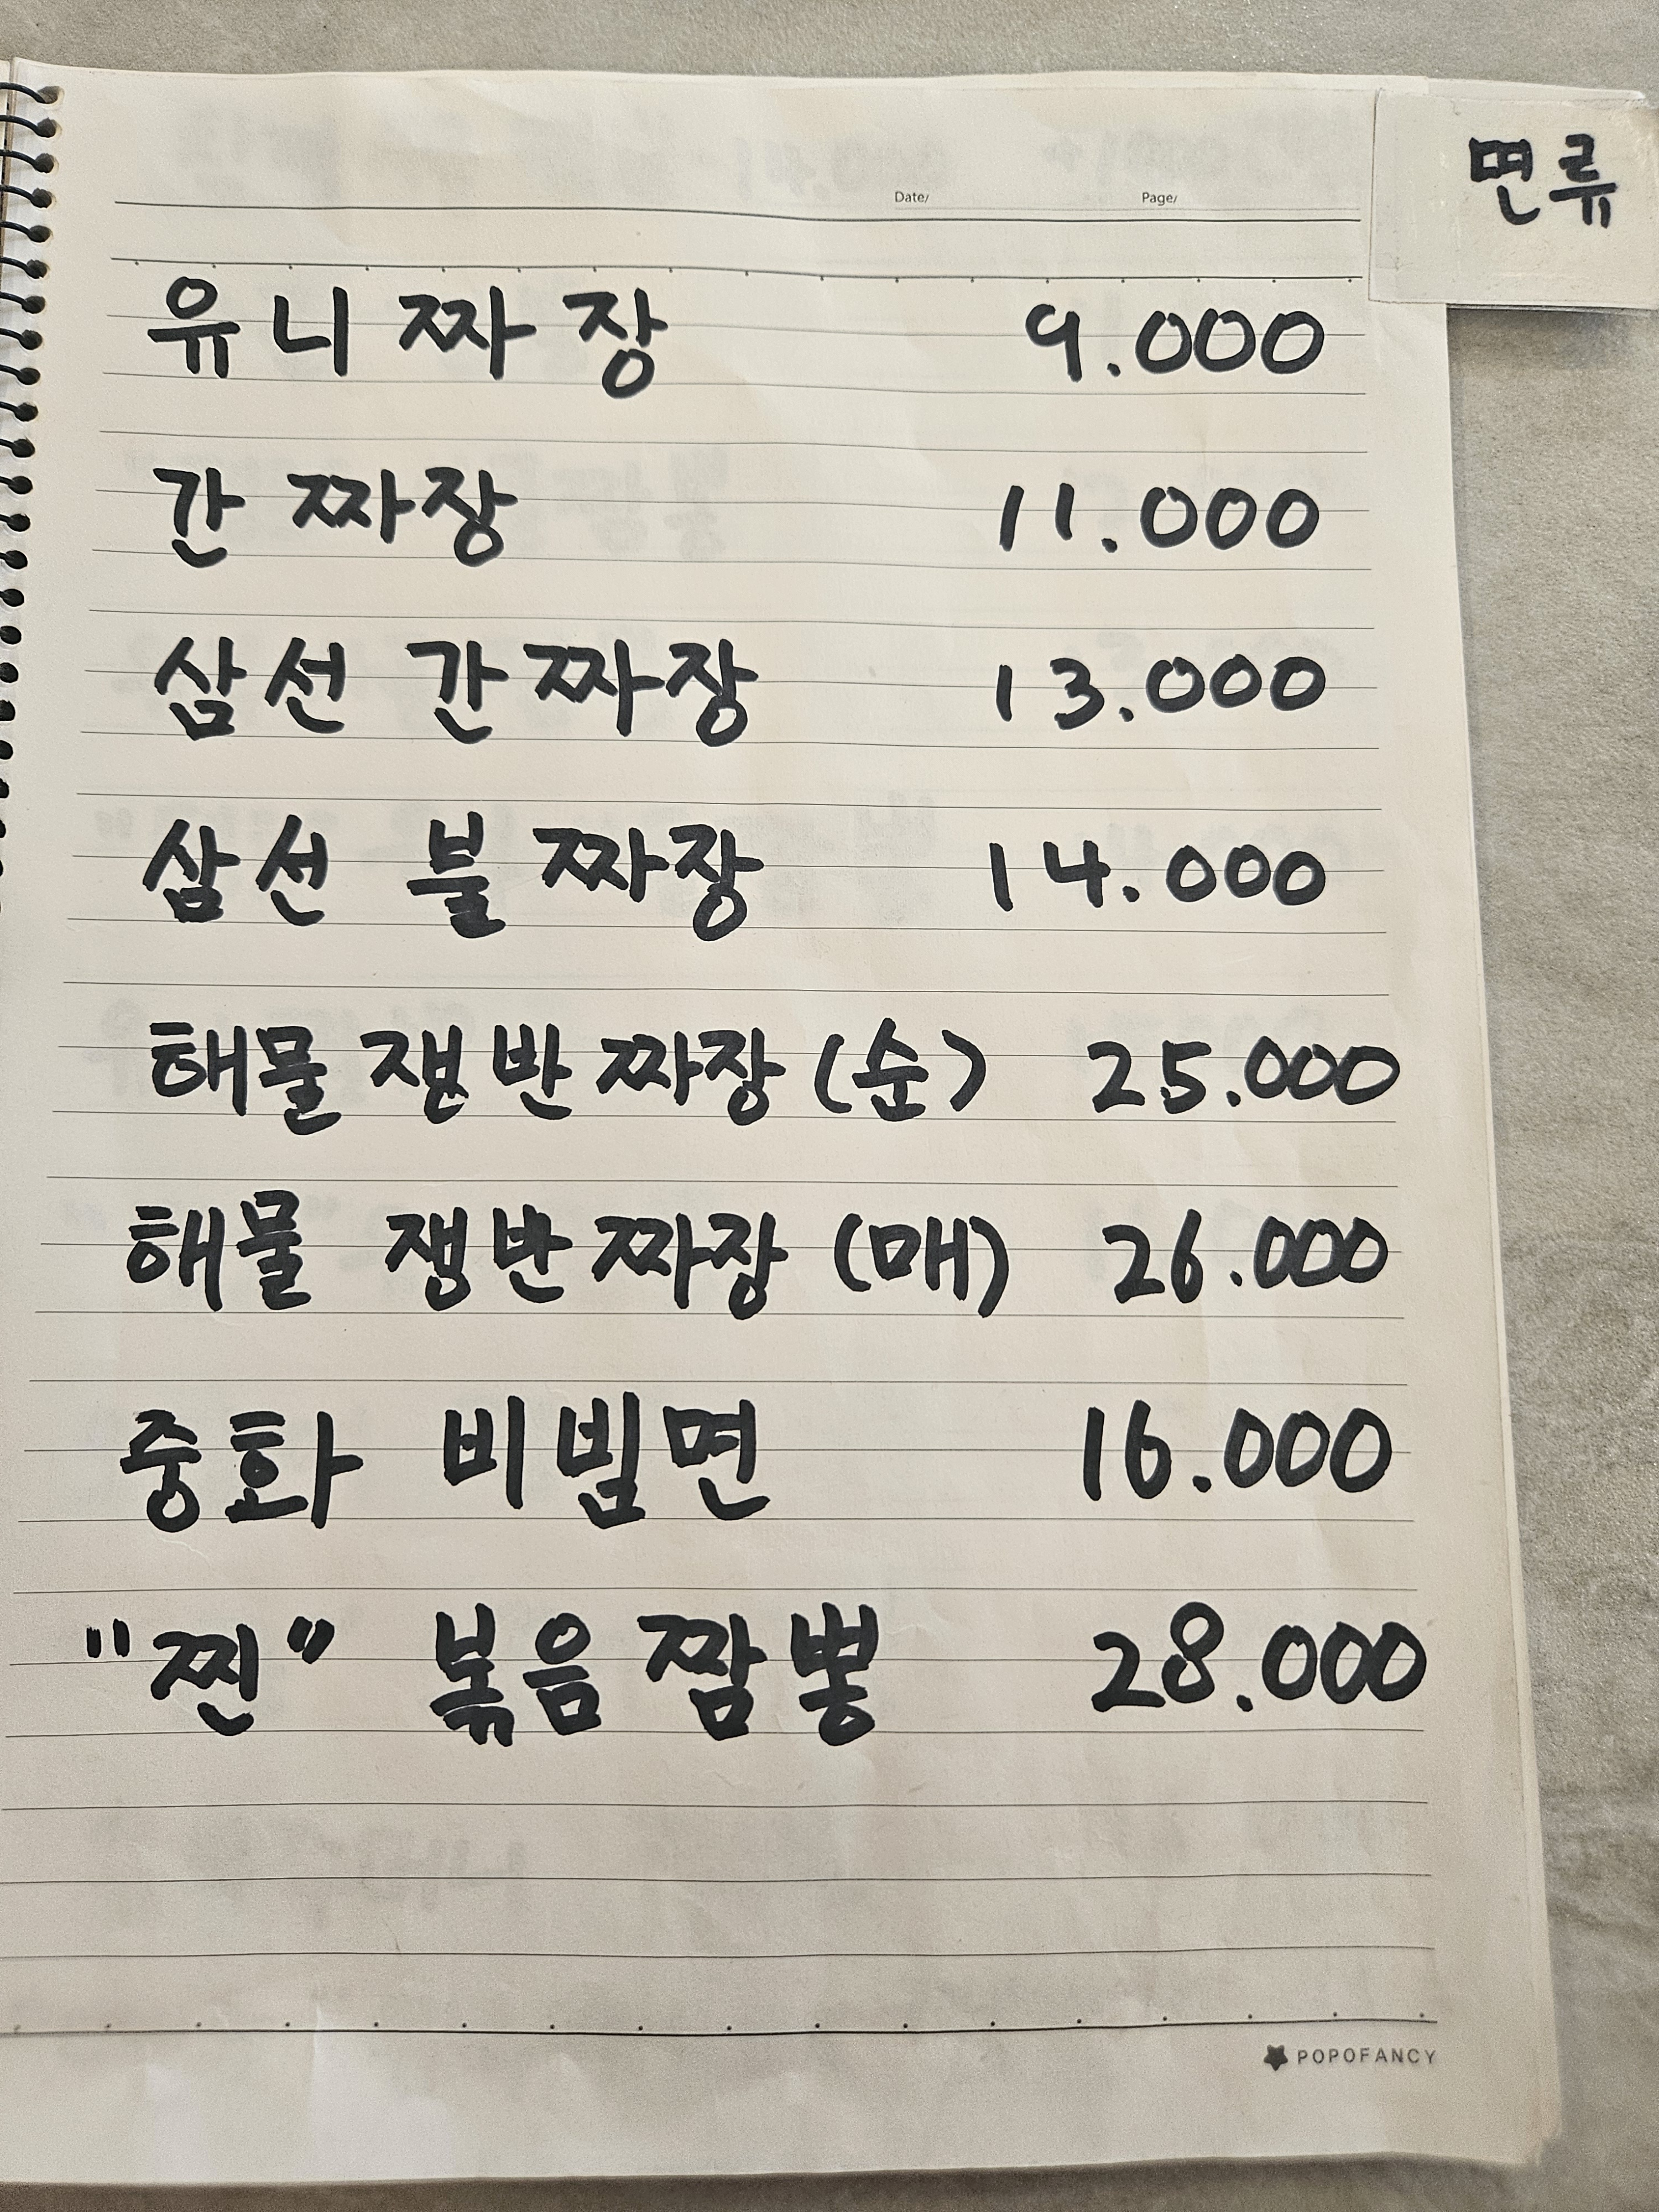 면류
Date/ Page/
유니짜장 9.000
간 짜장 11.000
삼선 간짜장 13.000
삼선 불짜장 14.000
해물 쟁반짜장 (순) 25.000
해물 쟁반짜장 (매) 26.000
중화 비빔면 16.000
"찐" 볶음짬뽕 28.000
POPOFANCY